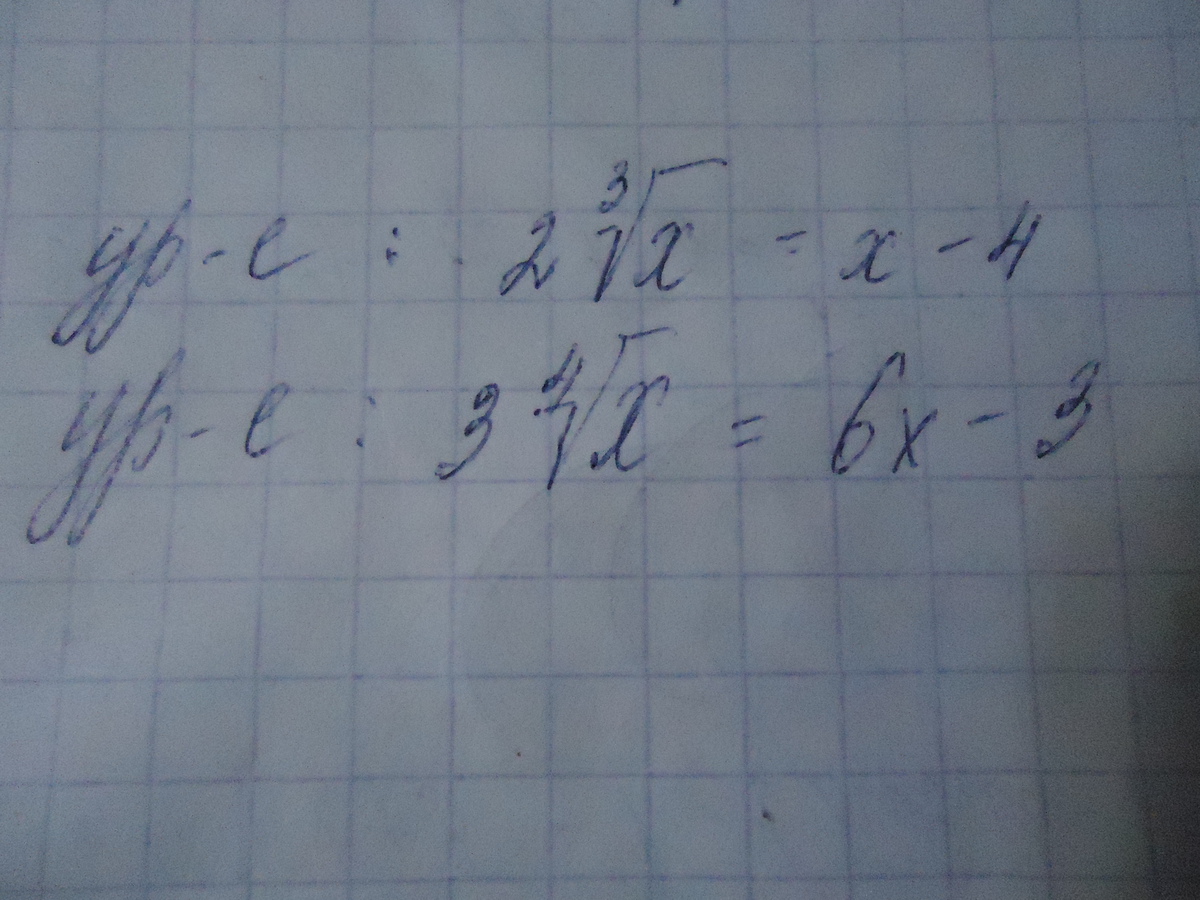 ур-е : 2∛x = x - 4
ур-е : 3∜x = 6x - 3